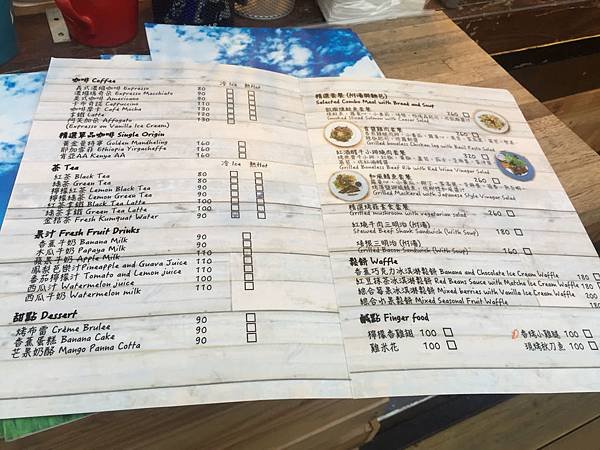 咖啡 Coffee 冷 Ice 熱 Hot
義式濃縮咖啡 Espresso 80
濃縮瑪奇朵 Espresso Macchiato 90
美式咖啡 Americano 90
卡布奇諾 Cappuccino 110
咖啡摩卡 Cafe Mocha 130
拿鐵 Latte 120
阿芙佳朵 Affogato 120
(Espresso on Vanilla Ice Cream)
精選單品咖啡 Single Origin
黃金曼特寧 Golden Mandheling 160
耶加雪菲 Ethiopia Yirgacheffe 160
肯亞AA Kenya AA 160
茶 Tea 冷 Ice 熱Hot
紅茶 Black Tea 80
綠茶 Green Tea 80
檸檬紅茶 Lemon Black Tea 90
檸檬綠茶 Lemon Green Tea 90
紅茶拿鐵 Black Tea Latte 100
綠茶拿鐵 Green Tea Latte 100
金桔茶 Fresh Kumquat Water 90
果汁 Fresh Fruit Drinks
香蕉牛奶 Banana Milk 90
木瓜牛奶 Papaya Milk 90
蘋果牛奶 Apple Milk 90
鳳梨芭樂汁Pineapple and Guava Juice 110
番茄檸檬汁 Tomato and Lemon juice 110
西瓜汁 Watermelon juice 110
西瓜牛奶 Watermelon milk 110
甜點 Dessert
烤布蕾 Crème Brulee 90
香蕉蛋糕 Banana Cake 90
芒果奶酪 Mango Panna Cotta 90
精選套餐 (附湯與麵包)
Selected Combo Meal with Bread and Soup
260
Grilled Boneless Chicken leg with Basil Pesto Salad 240
Grilled Boneless Beef Rib with Red Wine Vinegar Salad
Grilled Mackerel with Japanese Style Vinegar Salad
Grilled mushroom with vegetarian salad 240
紅燒牛肉三明治 (附湯)
Stewed Beef Shank Sandwich (With Soup) 160
培根三明治 (附湯)
Grilled Bacon Sandwich (With Soup) 140
鬆餅 Waffle
香蕉巧克力冰淇淋鬆餅 Banana and Chocolate Ice Cream Waffle 180
紅豆抹茶冰淇淋鬆餅 Red Beans Sauce with Matcha Ice Cream Waffle 180
綜合莓果冰淇淋鬆餅 Mixed berries with Vanilla Ice Cream Waffle 200
綜合水果鬆餅 Mixed Seasonal Fruit Waffle
鹹點 Finger food
檸檬香雞翅 100
香烤小雞腿 100
雞米花 100
現烤秋刀魚 100